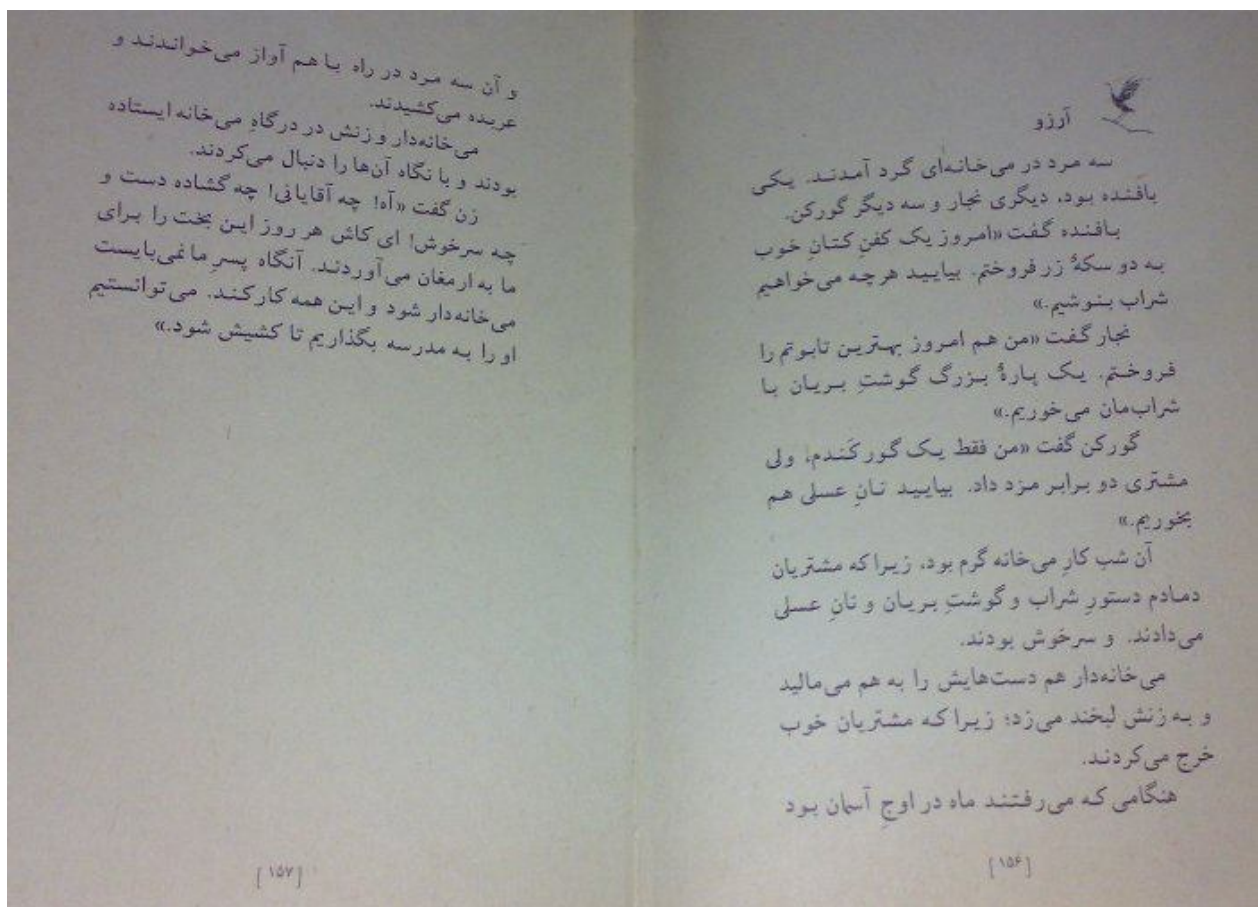 آرزو
سه مرد در می‌خانه‌ای گرد آمدند. یکی
بافنده بود، دیگری نجار و سه دیگر گورکن.
بافنده گفت «امروز یک کفنِ کتانِ خوب
به دو سکهٔ زر فروختم. بیایید هرچه می‌خواهیم
شراب بنوشیم.»
نجار گفت «من هم امروز بهترین تابوتم را
فروختم. یک پارهٔ بزرگ گوشتِ بریان با
شراب‌مان می‌خوریم.»
گورکن گفت «من فقط یک گور کَندم، ولی
مشتری دو برابر مزد داد. بیایید نانِ عسلی هم
بخوریم.»
آن شب کارِ می‌خانه گرم بود، زیرا که مشتریان
دمادم دستورِ شراب و گوشتِ بریان و نانِ عسلی
می‌دادند. و سرخوش بودند.
می‌خانه‌دار هم دست‌هایش را به هم می‌مالید
و به زنش لبخند می‌زد؛ زیرا که مشتریان خوب
خرج می‌کردند.
هنگامی که می‌رفتند ماه در اوجِ آسمان بود
[۱۵۶]
و آن سه مرد در راه با هم آواز می‌خواندند و
عربده می‌کشیدند.
می‌خانه‌دار و زنش در درگاهِ می‌خانه ایستاده
بودند و با نگاه آن‌ها را دنبال می‌کردند.
زن گفت «آه! چه آقایانی! چه گشاده دست و
چه سرخوش! ای کاش هر روز این بخت را برای
ما به ارمغان می‌آوردند. آنگاه پسرِ ما نمی‌بایست
می‌خانه‌دار شود و این همه کار کند. می‌توانستیم
او را به مدرسه بگذاریم تا کشیش شود.»
[۱۵۷]